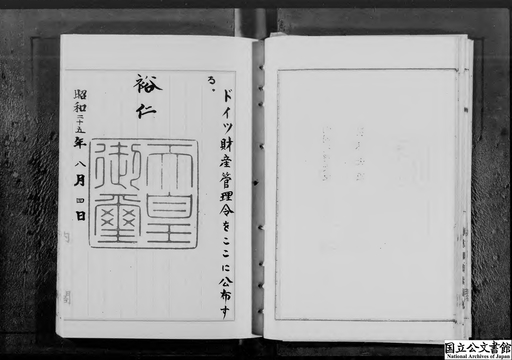 ドイツ財産管理令をここに公布す
る。
裕仁
天皇
御璽
昭和二十五年八月四日
国立公文書館
National Archives of Japan